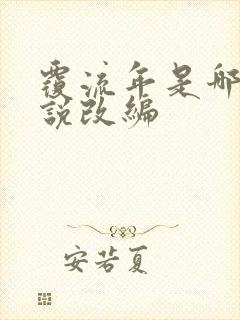 覆流年是那
說改編
安若夏